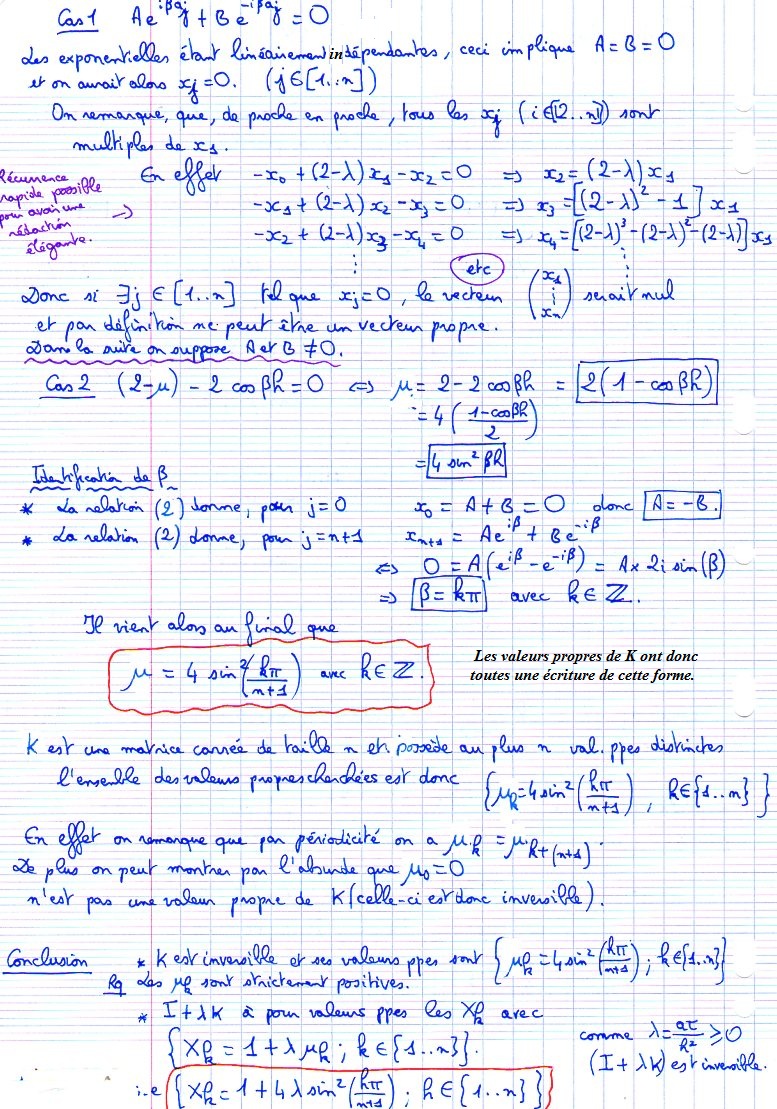 Cas 1 A e^{iβaj} + B e^{-iβaj} = 0
Les exponentielles étant linéairement indépendantes, ceci implique A = B = 0
et on aurait alors xj = 0. (j ∈ [1..n])
On remarque, que, de proche en proche, tous les xj (i ∈ [2..n]) sont
multiples de x₁.
Récurrence
rapide possible
pour avoir une
rédaction
élégante.
→
En effet -x₀ + (2-λ) x₁ - x₂ = 0 => x₂ = (2-λ) x₁
-x₁ + (2-λ) x₂ - x₃ = 0 => x₃ = [(2-λ)² - 1] x₁
-x₂ + (2-λ) x₃ - x₄ = 0 => x₄ = [(2-λ)³ - (2-λ)² - (2-λ)] x₁
⋮ etc ⋮
Donc si ∃j ∈ [1..n] tel que xj = 0, le vecteur (x₁ ⋮ xn) serait nul
et par définition ne peut être un vecteur propre.
Dans la suite on suppose A et B ≠ 0.
Cas 2 (2-μ) - 2 cos βh = 0 <=> μ = 2 - 2 cos βh = 2(1 - cos βh)
= 4 ((1-cos βh)/2)
= 4 sin² βh
Identification de β
* La relation (2) donne, pour j = 0 x₀ = A + B = 0 donc A = -B.
* La relation (2) donne, pour j = n+1 x_{n+1} = A e^{iβ} + B e^{-iβ}
<=> 0 = A(e^{iβ} - e^{-iβ}) = A × 2i sin(β)
=> β = kπ avec k ∈ ℤ.
Il vient alors au final que
μ = 4 sin²(kπ/(n+1)) avec k ∈ ℤ.
Les valeurs propres de K ont donc
toutes une écriture de cette forme.
K est une matrice carrée de taille n et possède au plus n val. ppes distinctes
l'ensemble des valeurs propres cherchées est donc {μk = 4 sin²(kπ/(n+1)), k ∈ {1..n}}
En effet on remarque que par périodicité on a μk = μ_{k+(n+1)}.
De plus on peut montrer par l'absurde que μ₀ = 0
n'est pas une valeur propre de K (celle-ci est donc inversible).
Conclusion * K est inversible et ses valeurs ppes sont {μk = 4 sin²(kπ/(n+1)) ; k ∈ {1..n}}
Rq Les μk sont strictement positives.
* I + λK à pour valeurs ppes les Xk avec
{Xk = 1 + λ μk ; k ∈ {1..n}}.
comme λ = aτ/h² ≥ 0
(I + λK) est inversible.
i.e {Xk = 1 + 4λ sin²(kπ/(n+1)) ; k ∈ {1..n}}